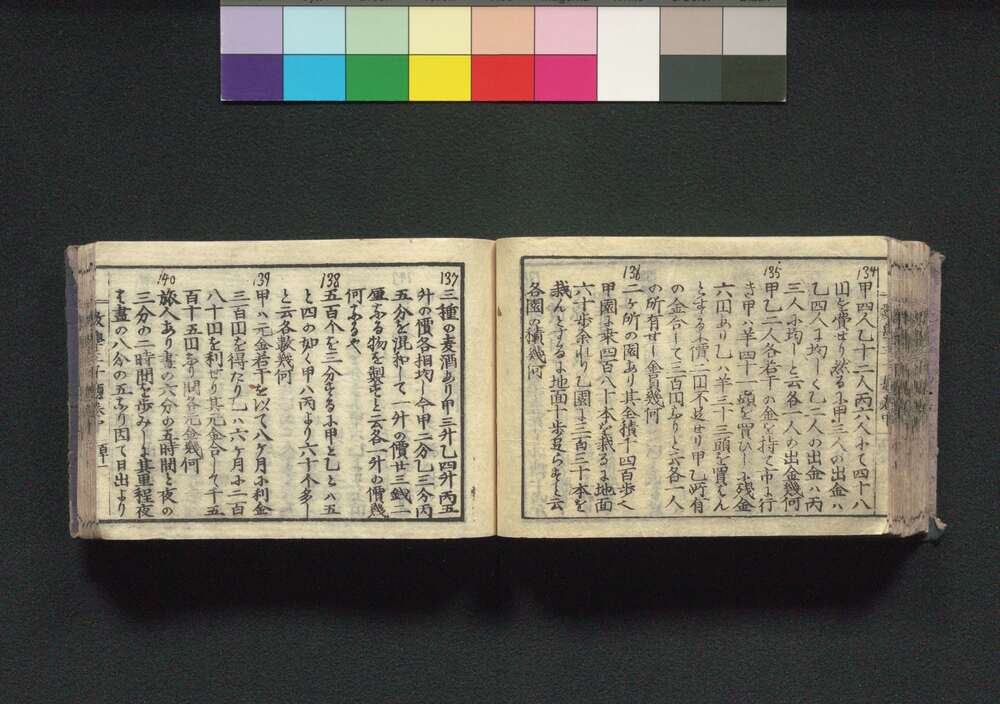 134
甲四人乙十二人丙六人ふて四十八
円を費せり然るふ甲三人の出金ハ
乙四人よ均しく乙二人の出金ハ丙
三人ふ均しと云各一人の出金幾何
135
甲乙二人各若干の金を持て市よ行
き甲ハ羊四十一頭を買ひしふ残金
六円あり乙ハ羊三十三頭を買はん
とするふ價二円不足せり甲乙所有
の金合して三百円なりと云各一人
の所有せし金員幾何
136
二ヶ所の園あり其全積十四百歩へ
甲園よ桒四百八十本を栽るよ地面
六十歩余れり乙園よ三百二十本を
栽んとするよ地面十歩足らずと云
各園の積幾何
137
三種の麦酒あり甲三升乙四升丙五
升の價各相均し今甲二分乙三分丙
五分を混和して一升の價廿三銭二
厘なる物を製すと云各一升の價幾
何なるや
138
五百个を三分するふ甲と乙とハ五
と四の如く甲ハ丙より六十个多し
と云各數幾何
139
甲ハ元金若干を以て八ケ月ふ利金
三百円を得たり乙ハ六ケ月ふ二百
八十円を利せり其元金合して千五
百十五円なり問各元金幾何
140
旅人あり晝の六分の五時間と夜の
三分の二時間を歩みしよ其里程夜
は晝の八分の五なり因て日出より